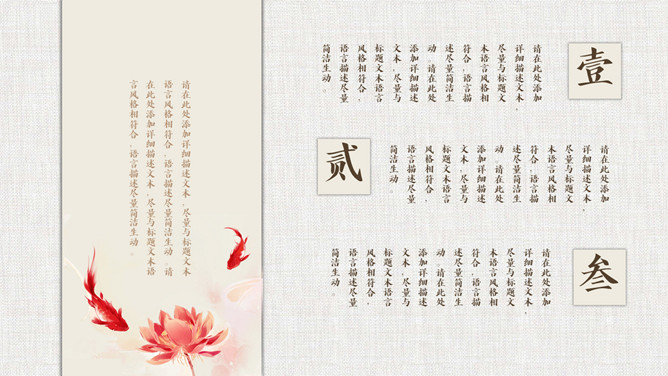 壹
请在此处添加
详细描述文本,
尽量与标题文
本语言风格相
符合,语言描
述尽量简洁生
动。请在此处
添加详细描述
文本,尽量与
标题文本语言
风格相符合,
语言描述尽量
简洁生动。
贰
请在此处添加
详细描述文本,
尽量与标题文
本语言风格相
符合,语言描
述尽量简洁生
动。请在此处
添加详细描述
文本,尽量与
标题文本语言
风格相符合,
语言描述尽量
简洁生动。
叁
请在此处添加
详细描述文本,
尽量与标题文
本语言风格相
符合,语言描
述尽量简洁生
动。请在此处
添加详细描述
文本,尽量与
标题文本语言
风格相符合,
语言描述尽量
简洁生动。
请在此处添加详细描述文本,尽量与标题文本
语言风格相符合,语言描述尽量简洁生动。请
在此处添加详细描述文本,尽量与标题文本语
言风格相符合,语言描述尽量简洁生动。